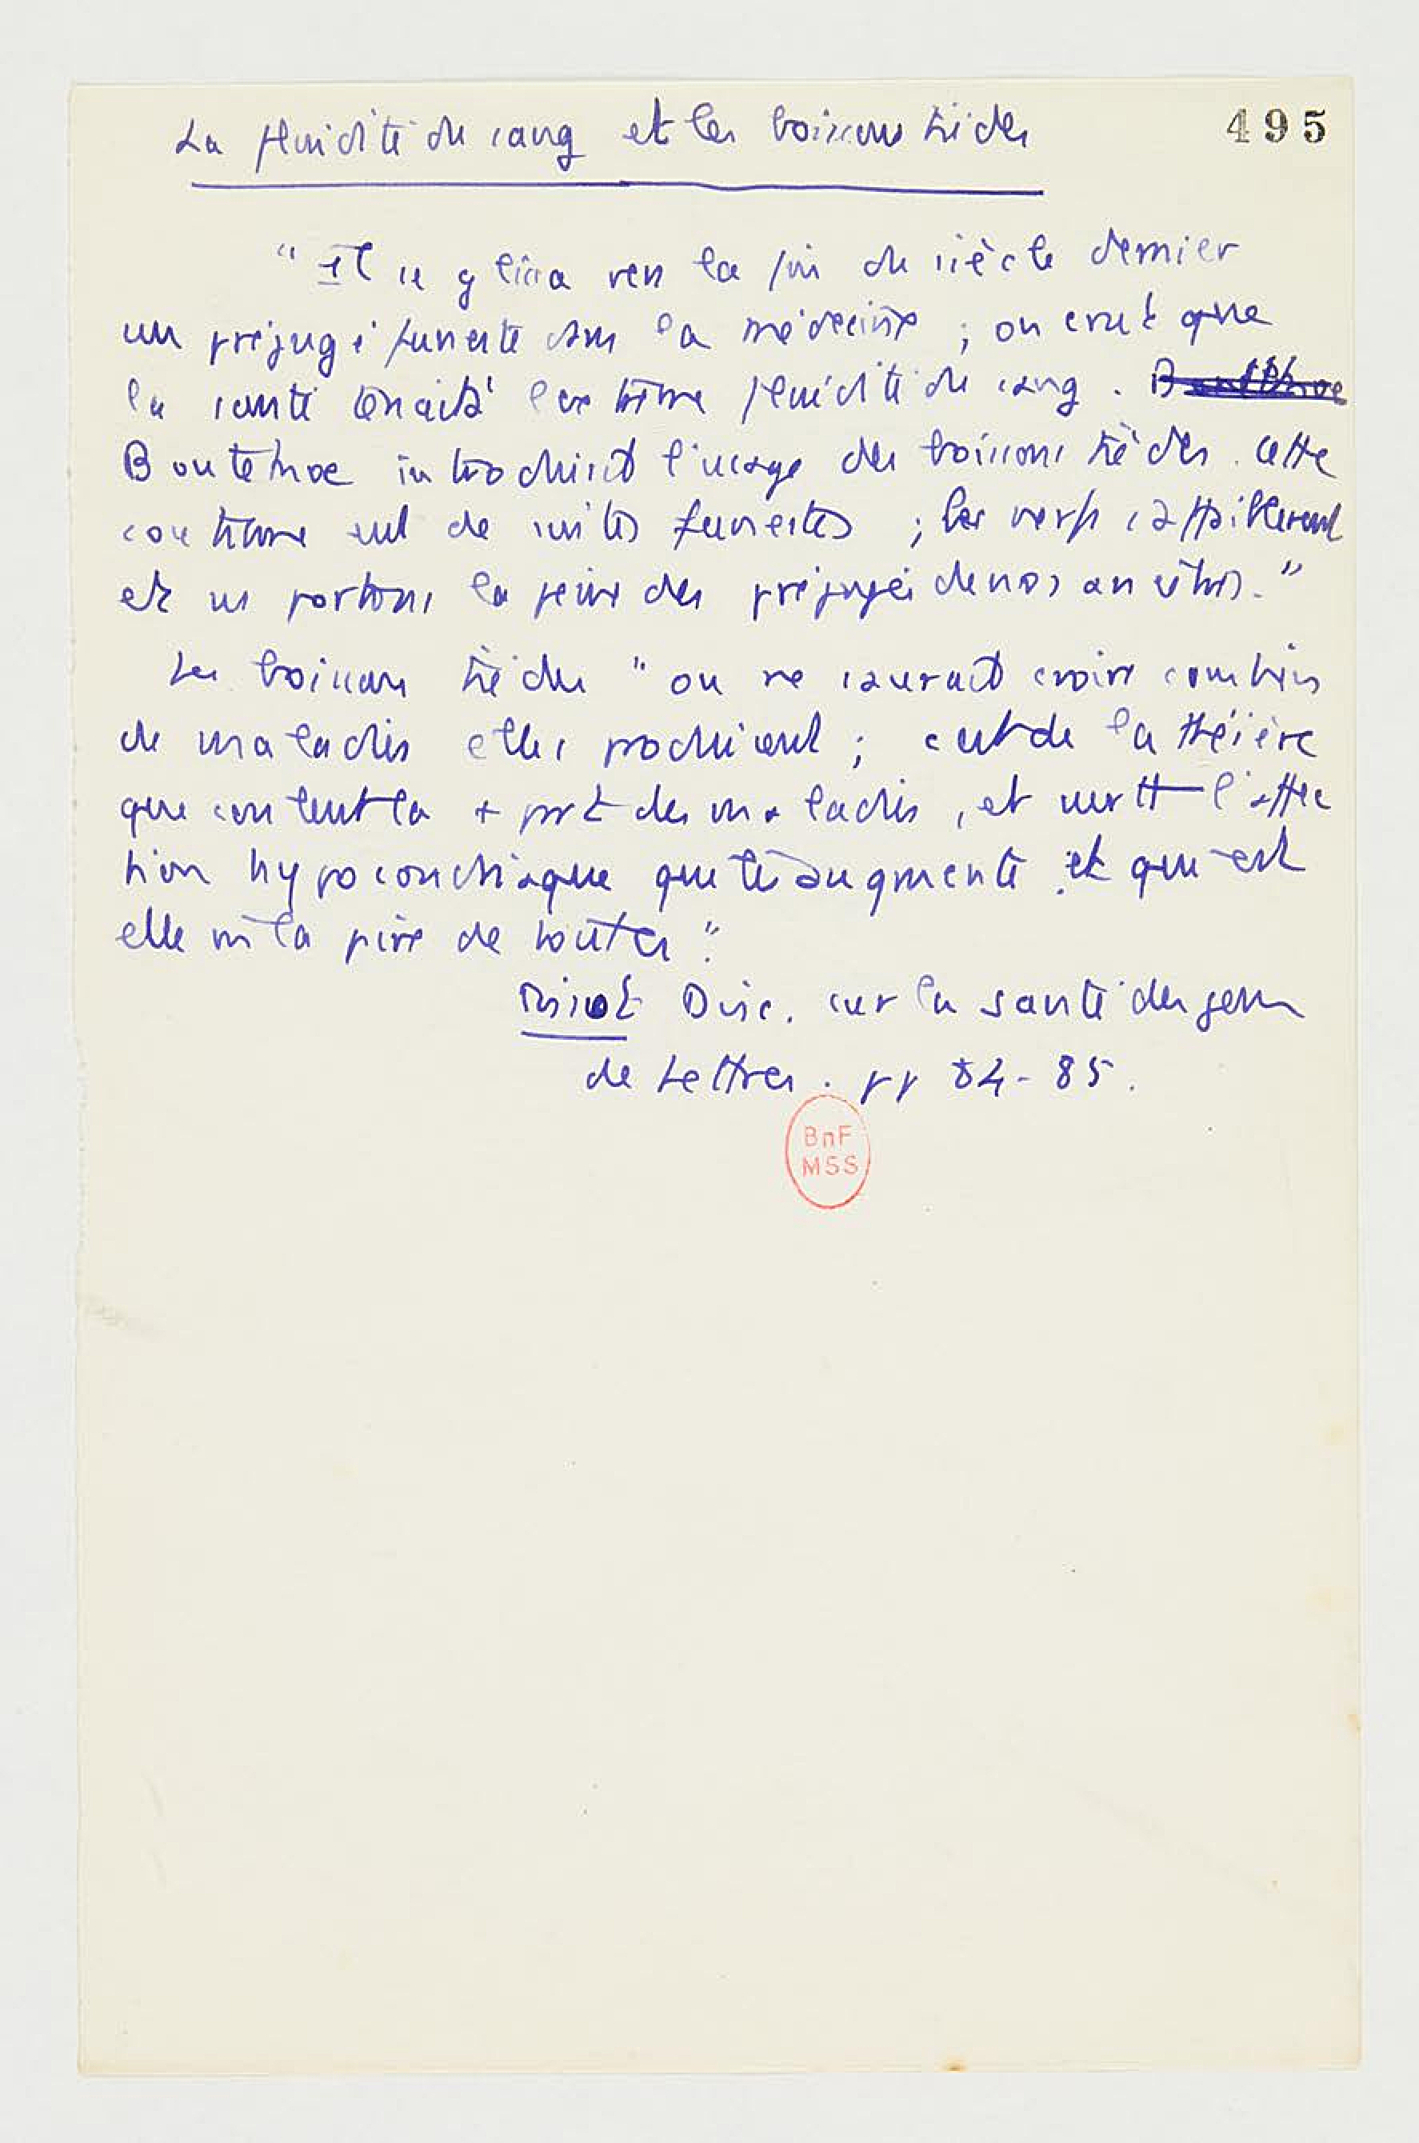 La fluidité du sang et les boissons tièdes
495
"Il se glissa vers la fin du siècle dernier
un préjugé funeste dans la médecine ; on crut que
la santé tenait à l'extrême fluidité du sang.
Boutekoe introduisit l'usage des boissons tièdes. Cette
coutume eut de suites funestes ; les nerfs s'affaiblirent
et ns portons la peine des préjugés de nos ancêtres."
Les boissons tièdes "on ne saurait croire combien
de maladies elles produisent ; c'est de la théière
que sortent la + part des maladies, et surtt l'affec
tion hypocondriaque que le augmente et qui est
elle m la pire de toutes".
Tissot Disc. sur la santé des gens
de Lettres. pp 84-85.
BnF
MSS